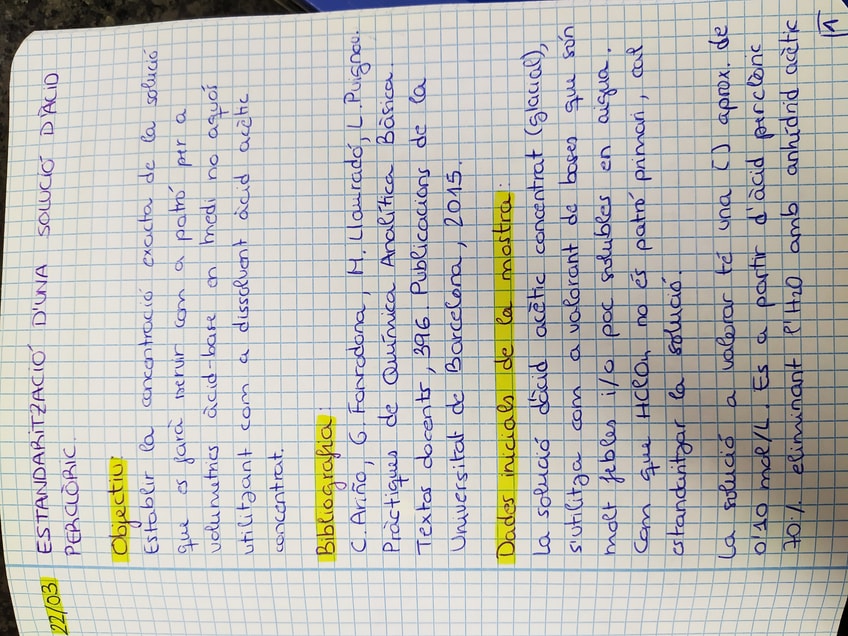 22/03 ESTANDARITZACIÓ D'UNA SOLUCIÓ D'ÀCID
PERCLÒRIC.
Objectiu:
Establir la concentració exacta de la solució
que es farà servir com a patró per a
volumetries àcid-base en medi no aquós
utilitzant com a dissolvent àcid acètic
concentrat.
Bibliografia:
C. Ariño, G. Fonrodona, M. Llauradó, L. Puignou.
Pràctiques de Química Analítica Bàsica.
Textos docents, 396 Publicacions de la
Universitat de Barcelona, 2015.
Dades inicials de la mostra:
La solució d'àcid acètic concentrat (glacial),
s'utilitza com a valorant de bases que són
molt febles i/o poc solubles en aigua.
Com que HClO4 no és patró primari, cal
estandaritzar la solució.
La solució a valorar té una [] aprox. de
0'10 mol/L. Es a partir d'àcid perclòric
70% eliminant l'H2O amb anhídrid acètic
1